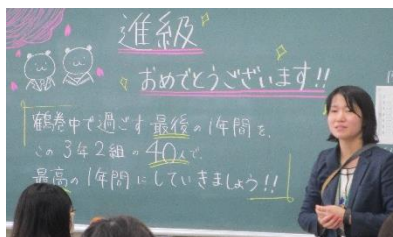 進級
おめでとうございます!!
鶴巻中で過ごす最後の1年間を、
この3年2組の40人で、
最高の1年間にしていきましょう!!